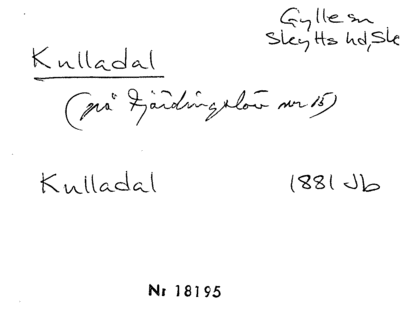 Gylle sn
Skytts hd, Sk
Kulladal
(på Fjärdingslöv nr 15)
Kulladal 1881 Jb
Nr 18195